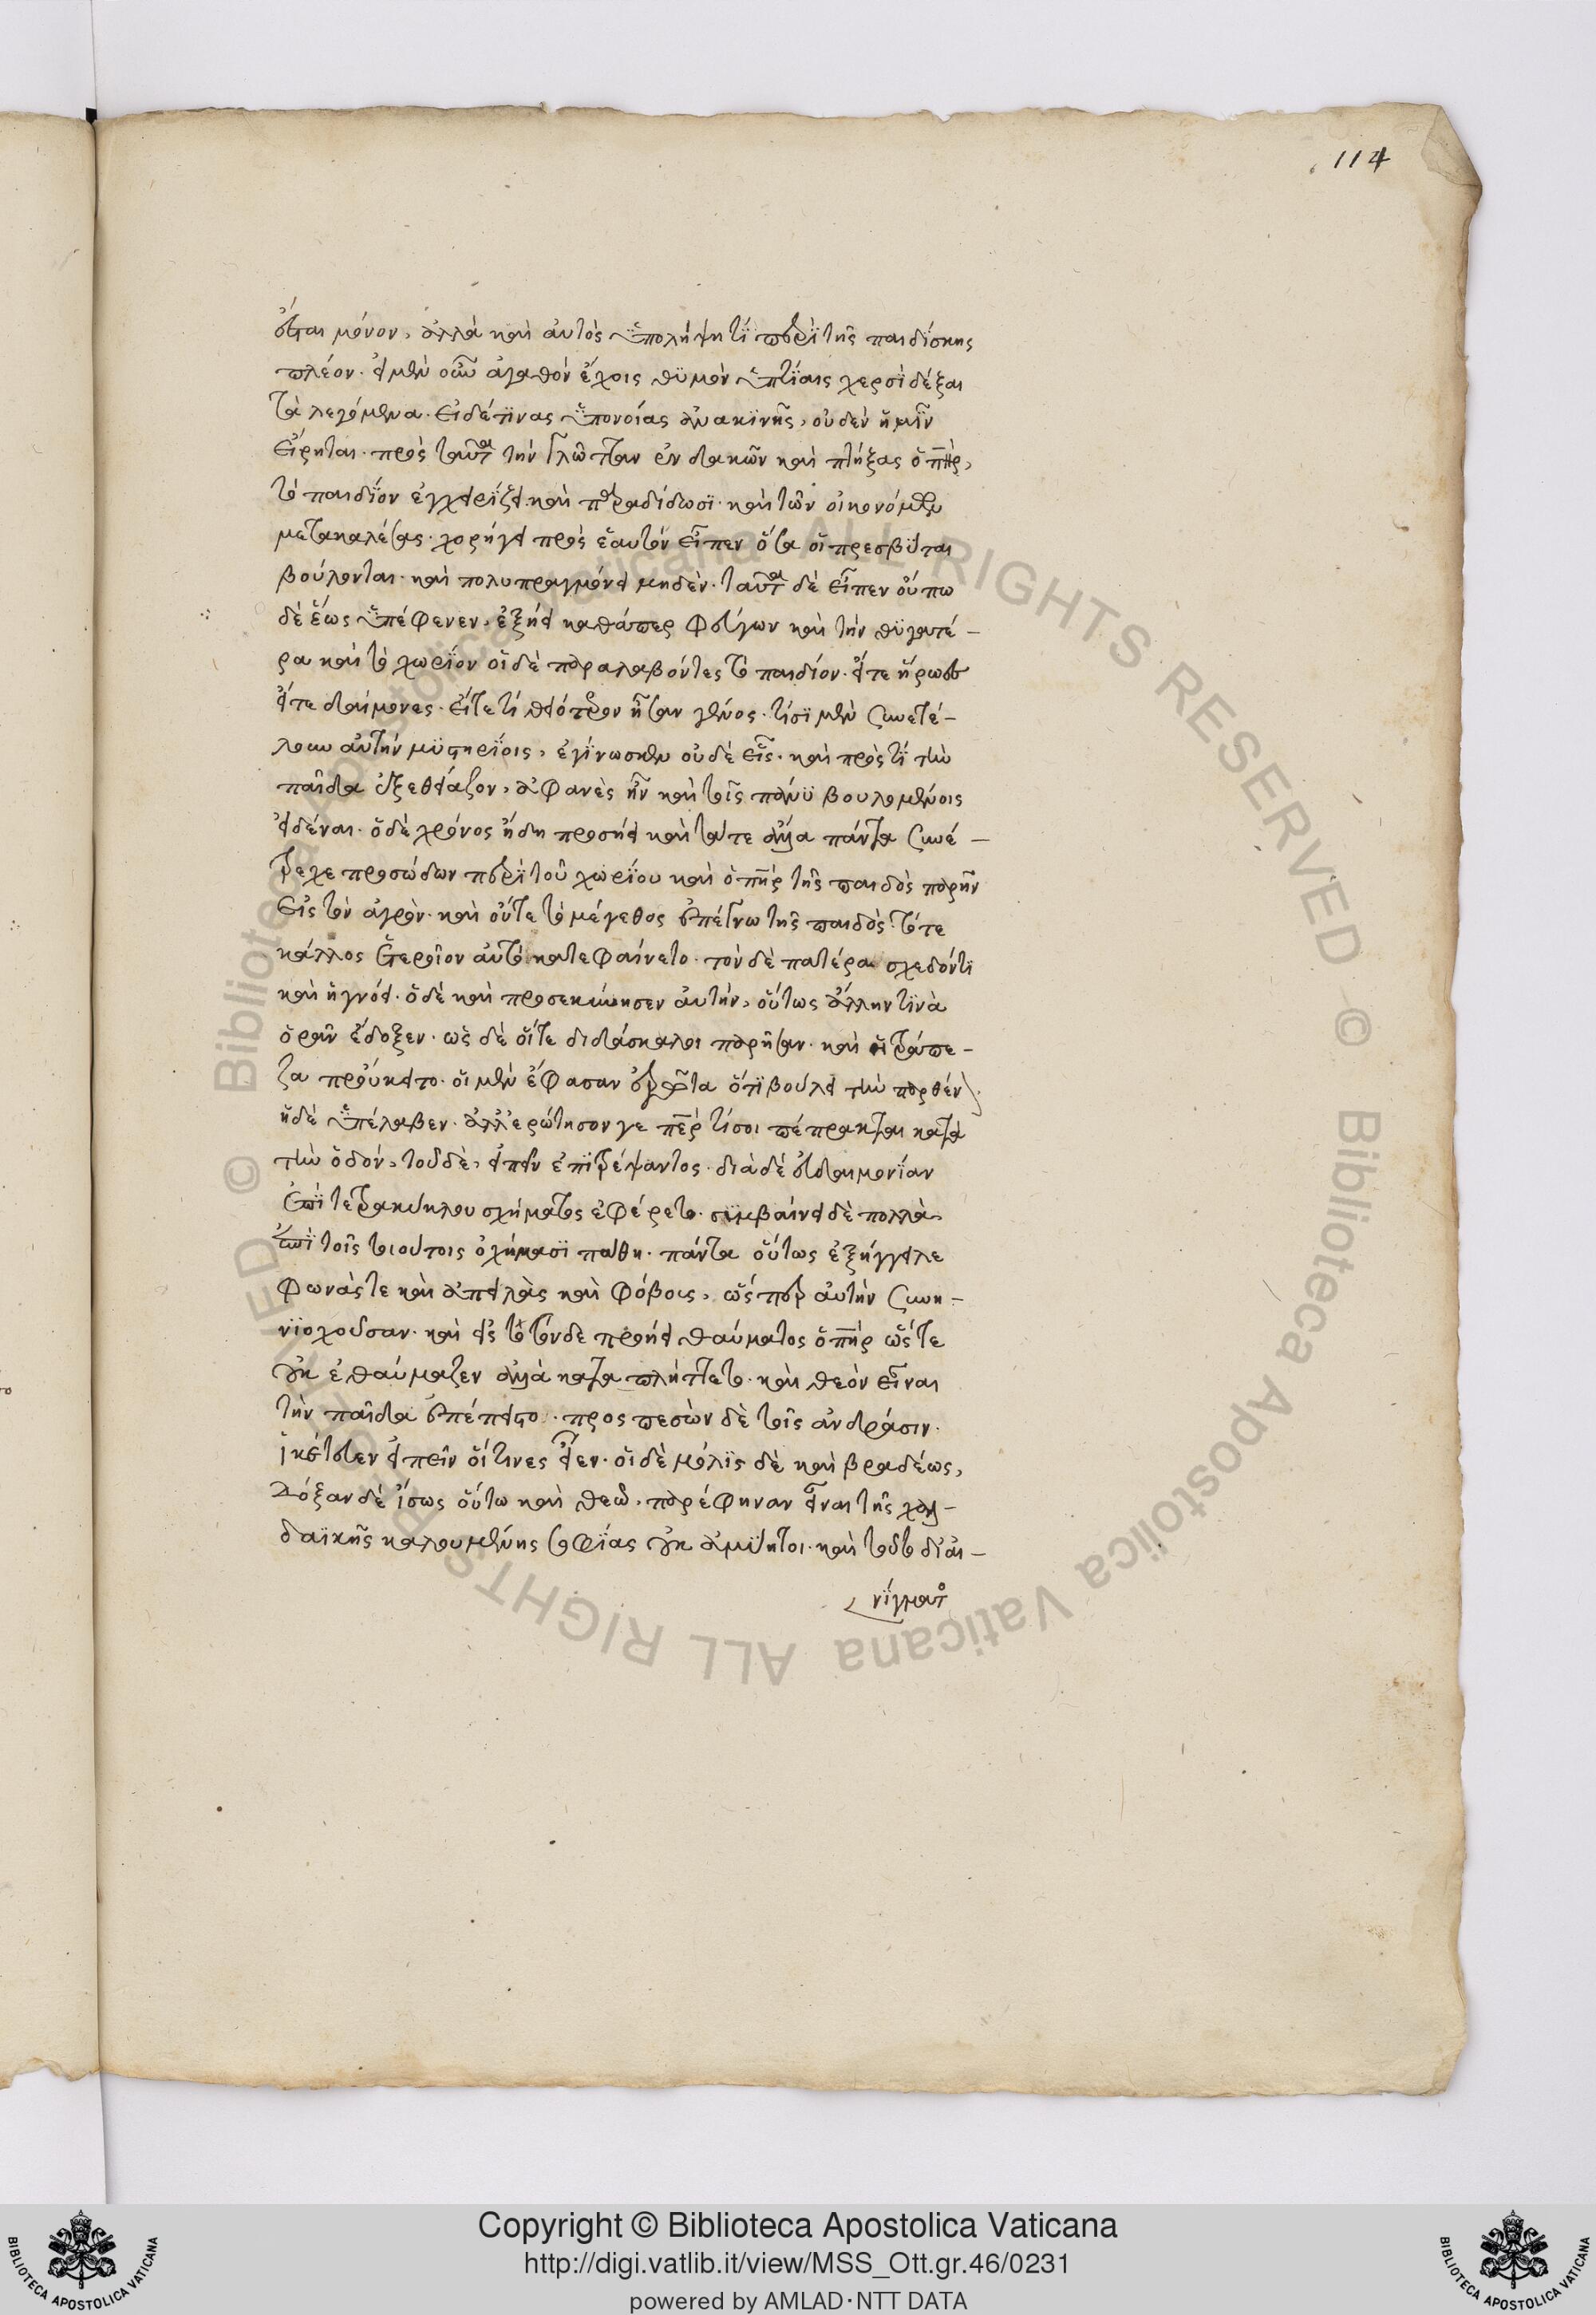 114
ἔσται μόνον, ἀλλὰ καὶ αὐτὸς ὑπολήψητί περὶ τῆς παιδίσκης
πλέον. εἰ μὲν οὖν ἀγαθὸν ἔχοις θυμὸν ὑπτίαις χερσὶ δέξαι
τὰ λεγόμενα. εἰ δέ τινας ὑπονοίας ἀνακινῆς, οὐδὲν ἡμῖν
εἴρηται. πρὸς ταῦτα τὴν γλῶτταν ἐνδακῶν καὶ πτήξας ὁ πηρ,
τὸ παιδίον ἐγχειρίζει καὶ παραδίδωσι. καὶ τὸν οἰκονόμον
μετακαλέσας. χορήγει πρὸς ἑαυτὸν εἶπεν ὅσα οἱ πρεσβῦται
βούλονται. καὶ πολυπραγμόνει μηδέν. ταῦτα δὲ εἶπεν οὔπω
δὲ ἕως ὑπέφενεν, ἐξήει καθάπερ φεύγων καὶ τὴν θυγατέ-
ρα καὶ τὸ χωρίον οἱ δὲ παραλαβόντες τὸ παιδίον. εἴτε ἥρωες
εἴτε δαίμονες. εἴτε τι θειότερον ἦσαν γένος. τίσι μὲν συνετέ-
λουν αὐτὴν μυστηρίοις, ἐγίνωσκεν οὐδὲ εἷς. καὶ πρὸς τί τὴν
παῖδα ἐξεθείαζον, ἀφανὲς ἦν καὶ τοῖς πάνυ βουλομένοις
εἰδέναι. ὁ δὲ χρόνος ἤδη προσήει καὶ τά τε ἄλλα πάντα συνέ-
τρεχε προσώδων περὶ τοῦ χωρίου καὶ ὁ πηρ τῆς παιδὸς παρῆν
εἰς τὸν ἀγρὸν. καὶ οὔτε τὸ μέγεθος ἐπέγνω τῆς παιδὸς. τότε
κάλλος ἑτεροῖον αὐτὸ κατεφαίνετο. τὸν δὲ πατέρα σχεδόν τι
καὶ ἠγνόει. ὁ δὲ καὶ προσεκύνησεν αὐτήν, οὕτως ἄλλην τινὰ
ὁρᾶν ἔδοξεν. ὡς δὲ οἵ τε διδάσκαλοι παρῆσαν. καὶ ἡ τράπε-
ζα προὔκειτο. οἱ μὲν ἔφασαν ἐρώτα ὅτι βούλει τὴν παρθέν
ἡ δὲ ὑπέλαβεν. ἀλλ ἐρώτησον γε περ τί σοι πέπρακται κατὰ
τὴν ὁδόν, τοῦ δὲ, εἰπεῖν ἐπιτρέψαντος. διὰ δὲ εὐδαιμονίαν
ἐπὶ τετρακύκλου σχήματος ἐφέρετο. συμβαίνει δὲ πολλὰ,
ἐπὶ τοῖς τοιούτοις ὀχήμασι πάθη. πάντα οὕτως ἐξήγγειλε
φωνάς τε καὶ ἀπειλὰς καὶ φόβους, ὥσπερ αὐτὴν συνη-
νιοχοῦσαν. καὶ εἰς τοτόνδε προήει θαύματος ὁ πηρ ὥστε
οὐκ ἐθαύμαζεν ἀλλὰ καταπλήττετο. καὶ θεὸν εἶναι
τὴν παῖδα ἐπέπειστο. προσπεσὼν δὲ τοῖς ἀνδράσιν.
ἱκέτευεν εἰπεῖν οἵτινες εἶεν. οἱ δὲ μόλις δὲ καὶ βραδέως,
δόξαν δὲ ἴσως οὕτω καὶ θεῶ. παρέφηναν εἶναι τῆς χαλ-
δαϊκῆς καλουμένης σοφίας οὐκ ἀμύητοι. καὶ τοῦτο δι αἰ-
νίγματ
Copyright © Biblioteca Apostolica Vaticana
http://digi.vatlib.it/view/MSS_Ott.gr.46/0231
powered by AMLAD·NTT DATA